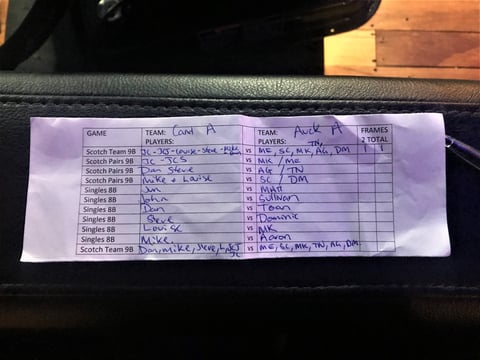 GAME TEAM: Cant A TEAM: Auck A FRAMES
PLAYERS: PLAYERS: TN, 2 TOTAL
Scotch Team 9B JC-JCS-Louise-Steve-Mike vs ME, SC, MK, AG, DM 1 1
Scotch Pairs 9B JC-JCS vs MK / ME
Scotch Pairs 9B Dan Steve vs AG / TN
Scotch Pairs 9B Mike + Louise vs SC / DM
Singles 8B Jim vs Matt
Singles 8B John vs Sullivan
Singles 8B Dan vs Toan
Singles 8B Steve vs Dominic
Singles 8B Louise vs MK
Singles 8B Mike vs Aaron
Scotch Team 9B Dan, Mike, Steve, L, JCS JC vs ME, SC, MK, TN, AG, DM